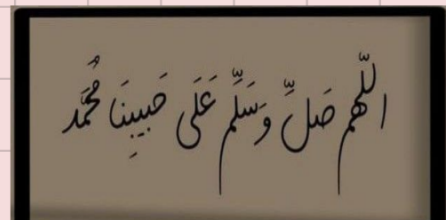 اللّهم صَلِّ وَسَلِّم عَلَى حَبِيبِنَا مُحَمَّد